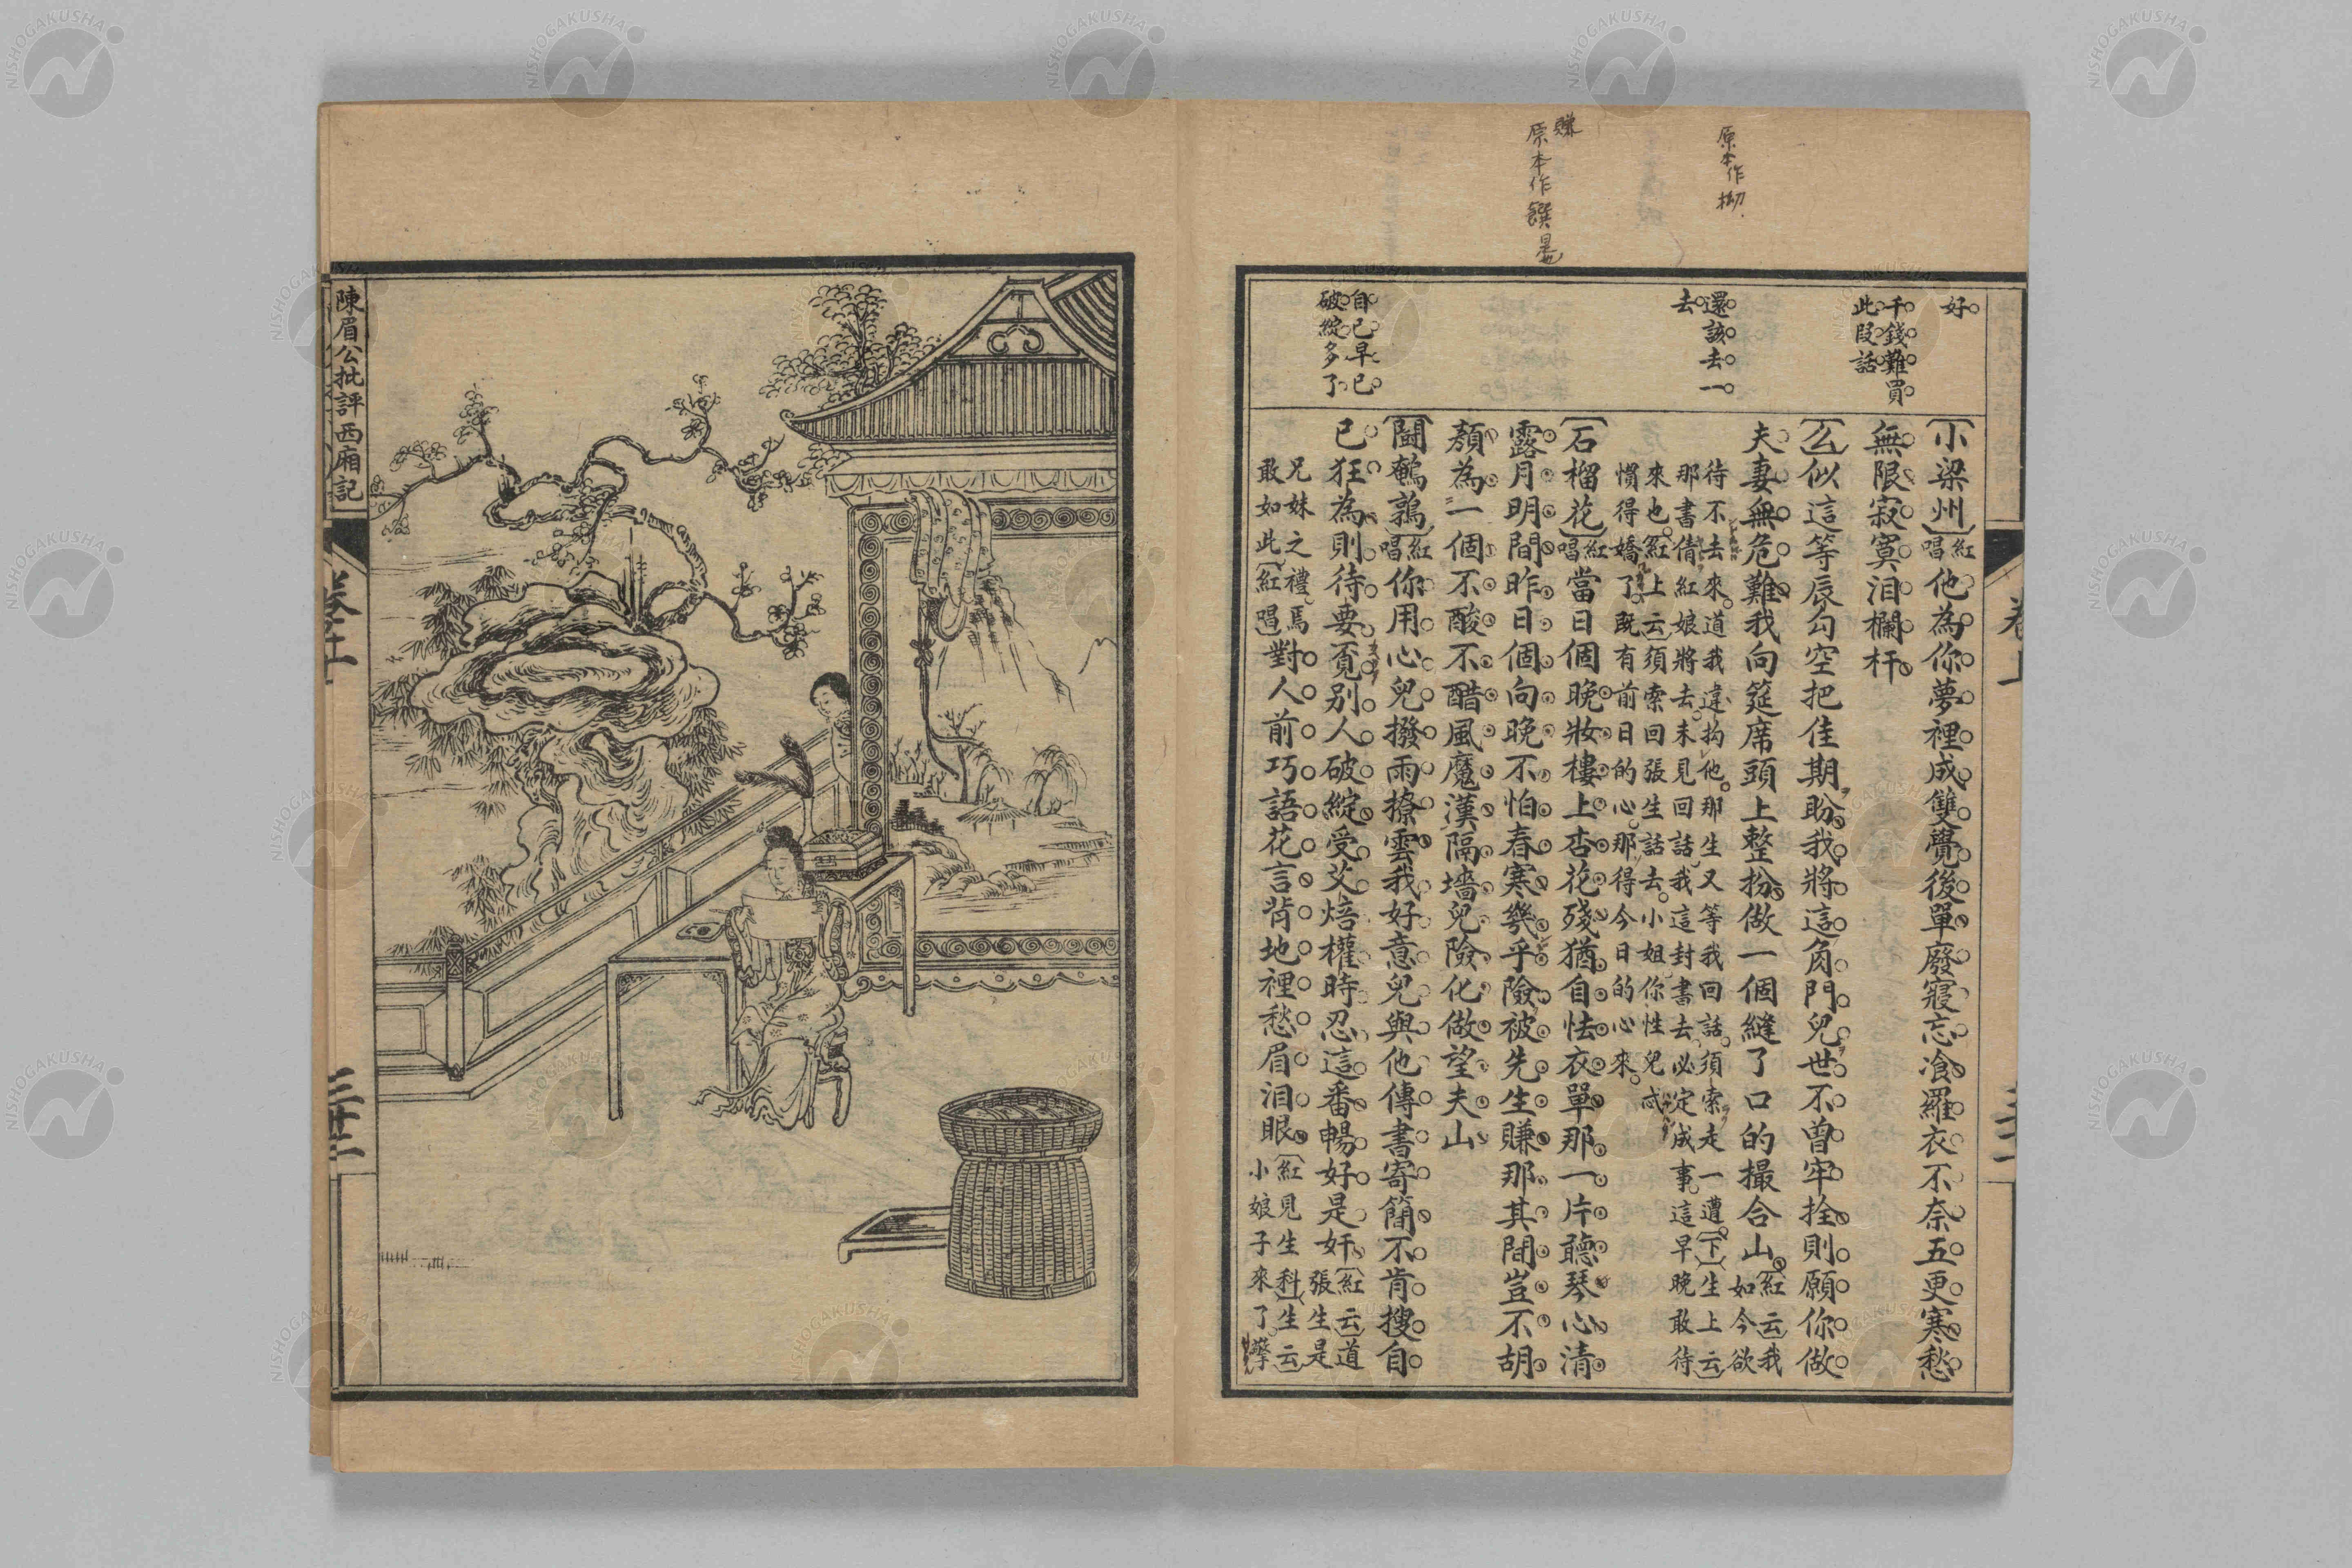 原本作拗
賺
原本作饌是也
好
千錢難買
此段話
還該去一
去
自己早已
破綻多了
小梁州紅唱他為你夢裡成雙覺後單廢寢忘飡羅衣不奈五更寒愁
無限寂寞泪欄杆
么似這等辰勾空把佳期盼我將這角門兒世不曾牢拴則願你做
夫妻無危難我向筵席頭上整扮做一個縫了口的撮合山紅云我
如今欲
待不去來道我違拘他那生又等我回話須索走一遭下生上云
那書倩紅娘將去未見回話我這封書去必定成事這早晚敢待
來也紅上云須索回張生話去小姐你性兒忒
慣得嬌了既有前日的心那得今日的心來
石榴花紅唱當日個晚妝樓上杏花殘猶自怯衣單那一片聽琴心清
露月明間昨日個向晚不怕春寒幾乎險被先生賺那其間豈不胡
顏為一個不酸不醋風魔漢隔墻兒險化做望夫山
鬪鵪鶉紅唱你用心兒撥雨撩雲我好意兒與他傳書寄簡不肯搜自
己狂為則待要覓別人破綻受艾焙權時忍這番暢好是奸紅云道
張生是
兄妹之禮馬
敢如此紅唱對人前巧語花言背地裡愁眉泪眼紅見生科生云
小娘子來了擎
卷上
陳眉公批評西廂記
卷上
三十二
NISHOGAKUSHA